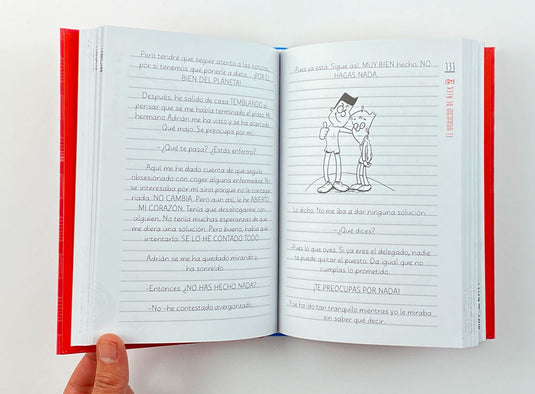 Pero tendré que seguir atento a las noticias,
por si tenemos que ponerle a dieta... ¡POR EL
BIEN DEL PLANETA!
Después, he salido de casa TEMBLANDO al
pensar que se me había terminado el plazo. Mi
hermano Adrián me ha visto y se ha acercado.
Qué majo. Se preocupa por mí.
-¿Qué te pasa? ¿Estás enfermo?
Aquí me he dado cuenta de que seguía
obsesionado con coger alguna enfermedad. No
se interesaba por mí sino porque no le contagie
nada. NO CAMBIA. Pero aun así, le he ABIERTO
MI CORAZÓN. Tenía que desahogarme con
alguien. No tenía muchas esperanzas de que
me diera una solución. Pero bueno, había que
intentarlo. SE LO HE CONTADO TODO.
Adrián se me ha quedado mirando y
ha sonreído.
-Entonces, ¿NO HAS HECHO NADA?
-No -he contestado avergonzado.
-Pues ya está. Sigue así. MUY BIEN hecho. NO
HAGAS NADA.
Lo dicho. No me iba a dar ninguna solución.
-¿Qué dices?
-Pues lo que oyes. Si ya eres el delegado, nadie
te puede quitar el puesto. Da igual que no
cumplas lo prometido.
¡TE PREOCUPAS POR NADA!
Y se ha ido tan tranquilo mientras yo le miraba
sin saber qué decir.
133
DE ÁLEX